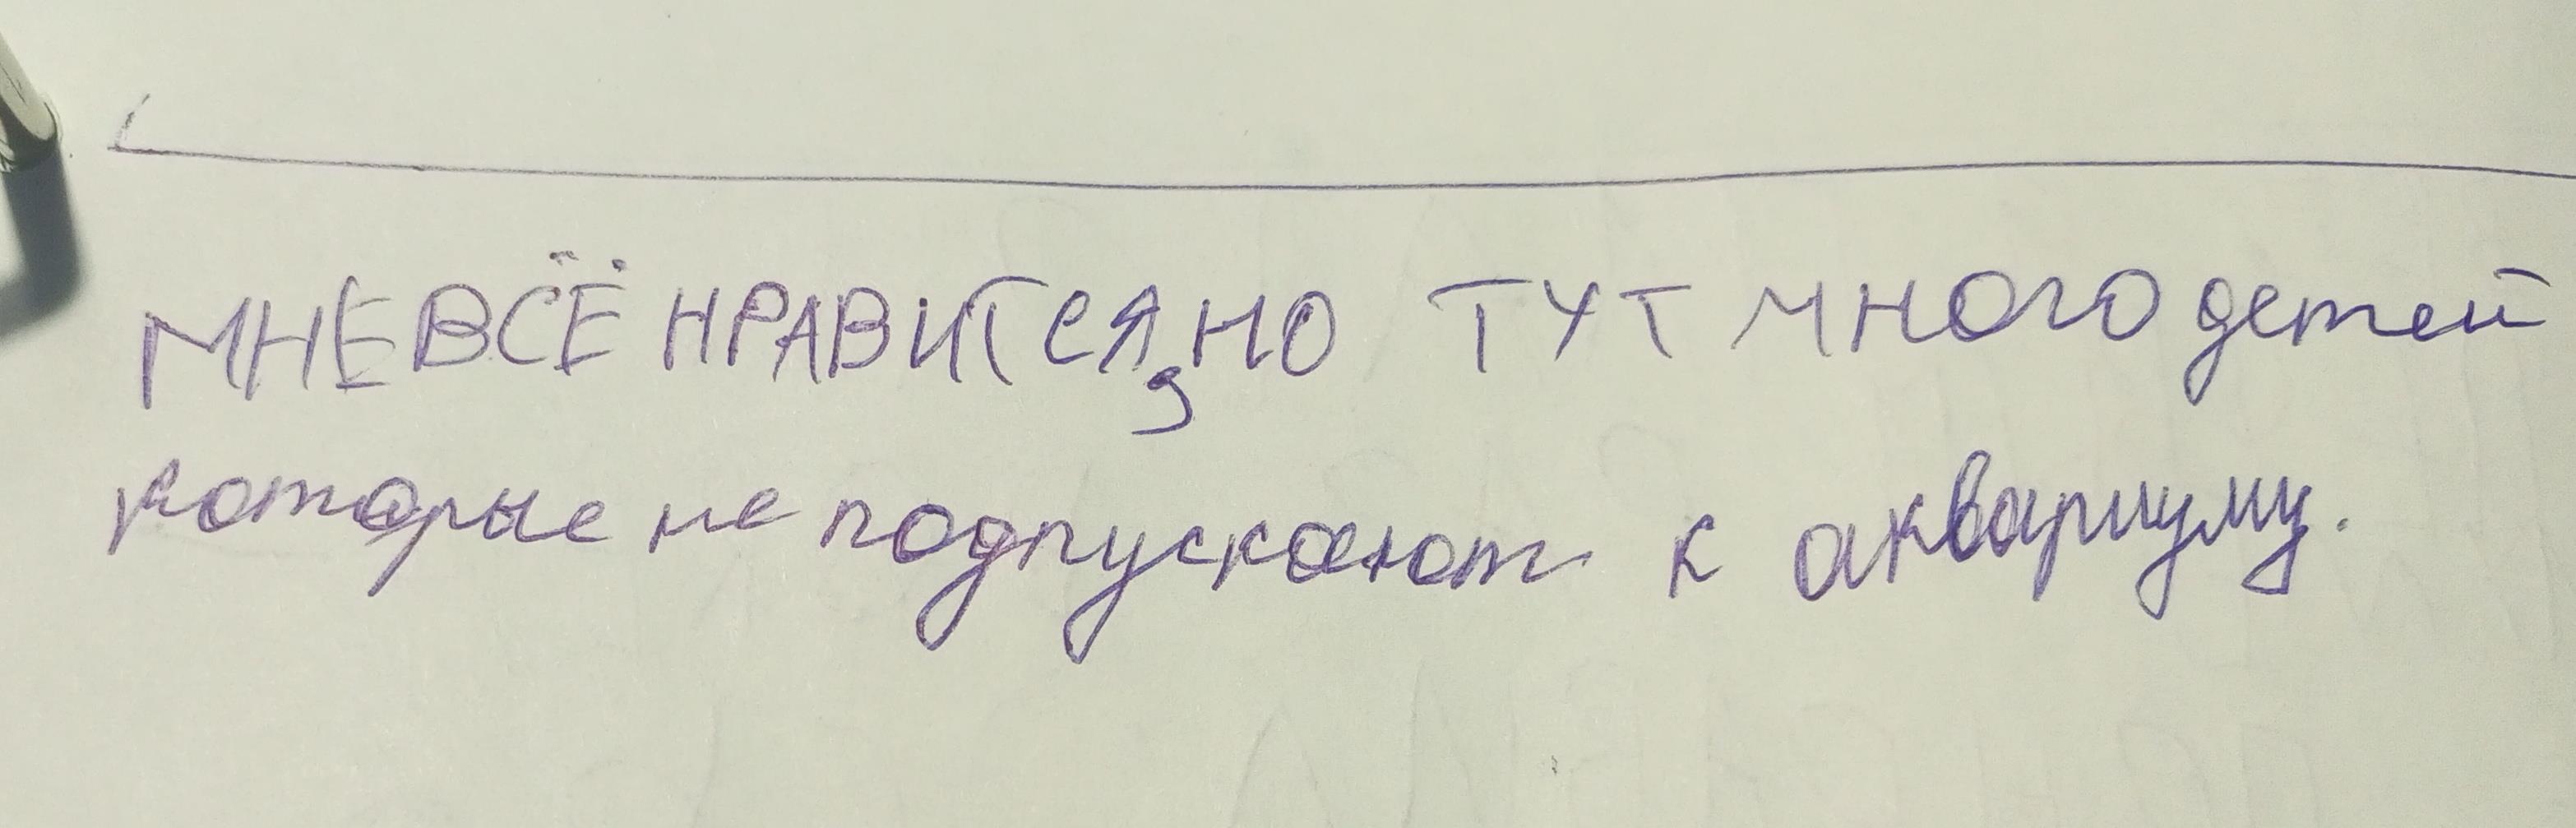 МНЕ ВСЁ НРАВИТСЯ, НО ТУТ МНОГО детей
которые не подпускают к аквариуму.